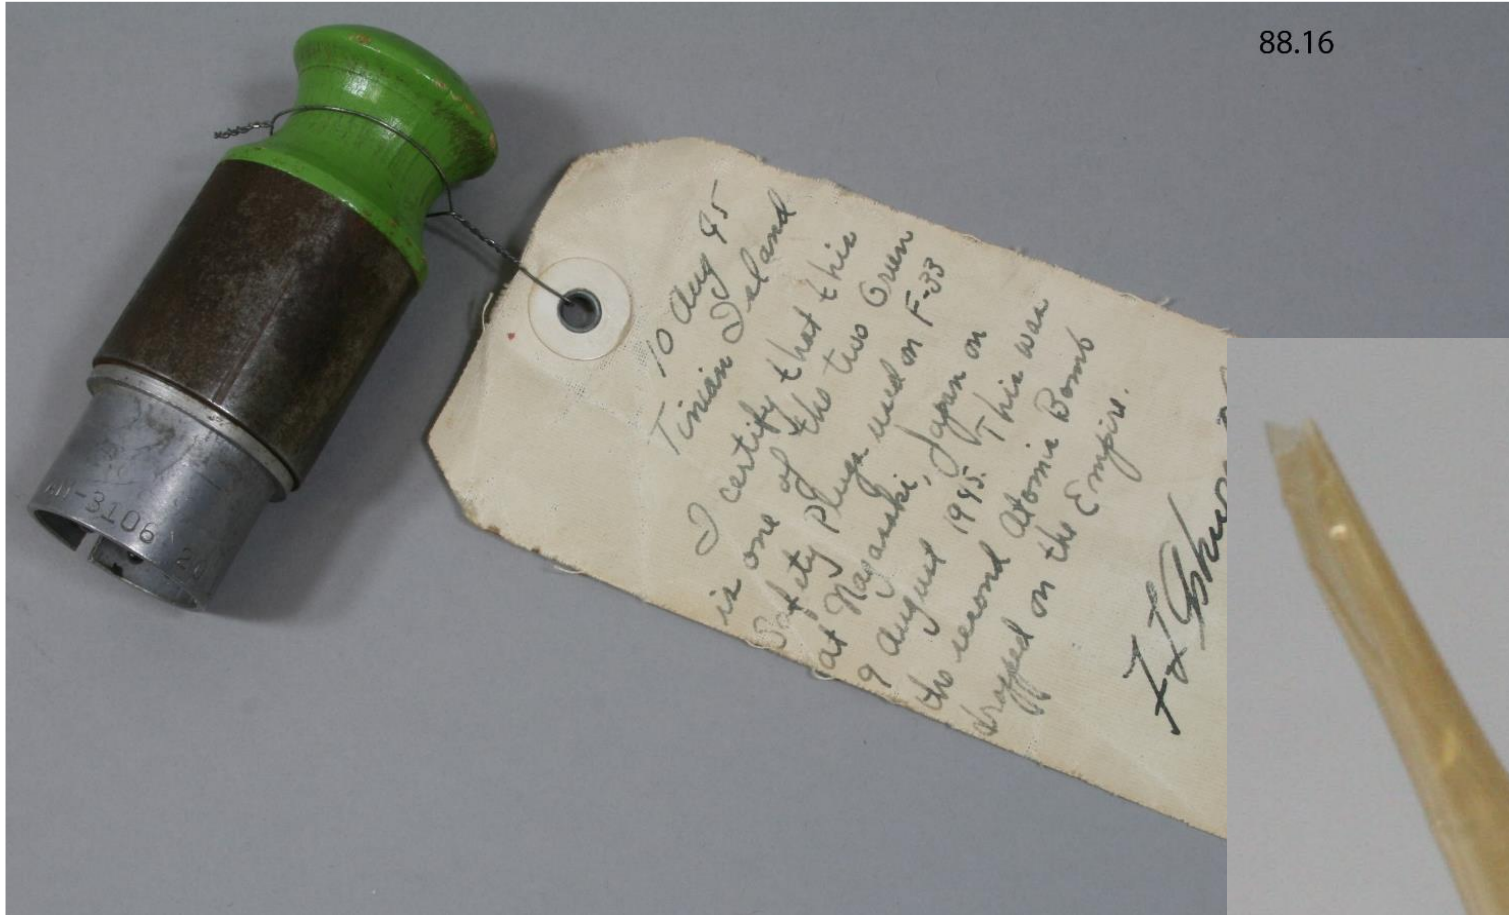 88.16
AN-3106
10 Aug 45
Tinian Island
I certify that this
is one of the two Green
Safety Plugs used on F-33
at Nagasaki, Japan on
9 August 1945. This was
the second Atomic Bomb
dropped on the Empire.
F L